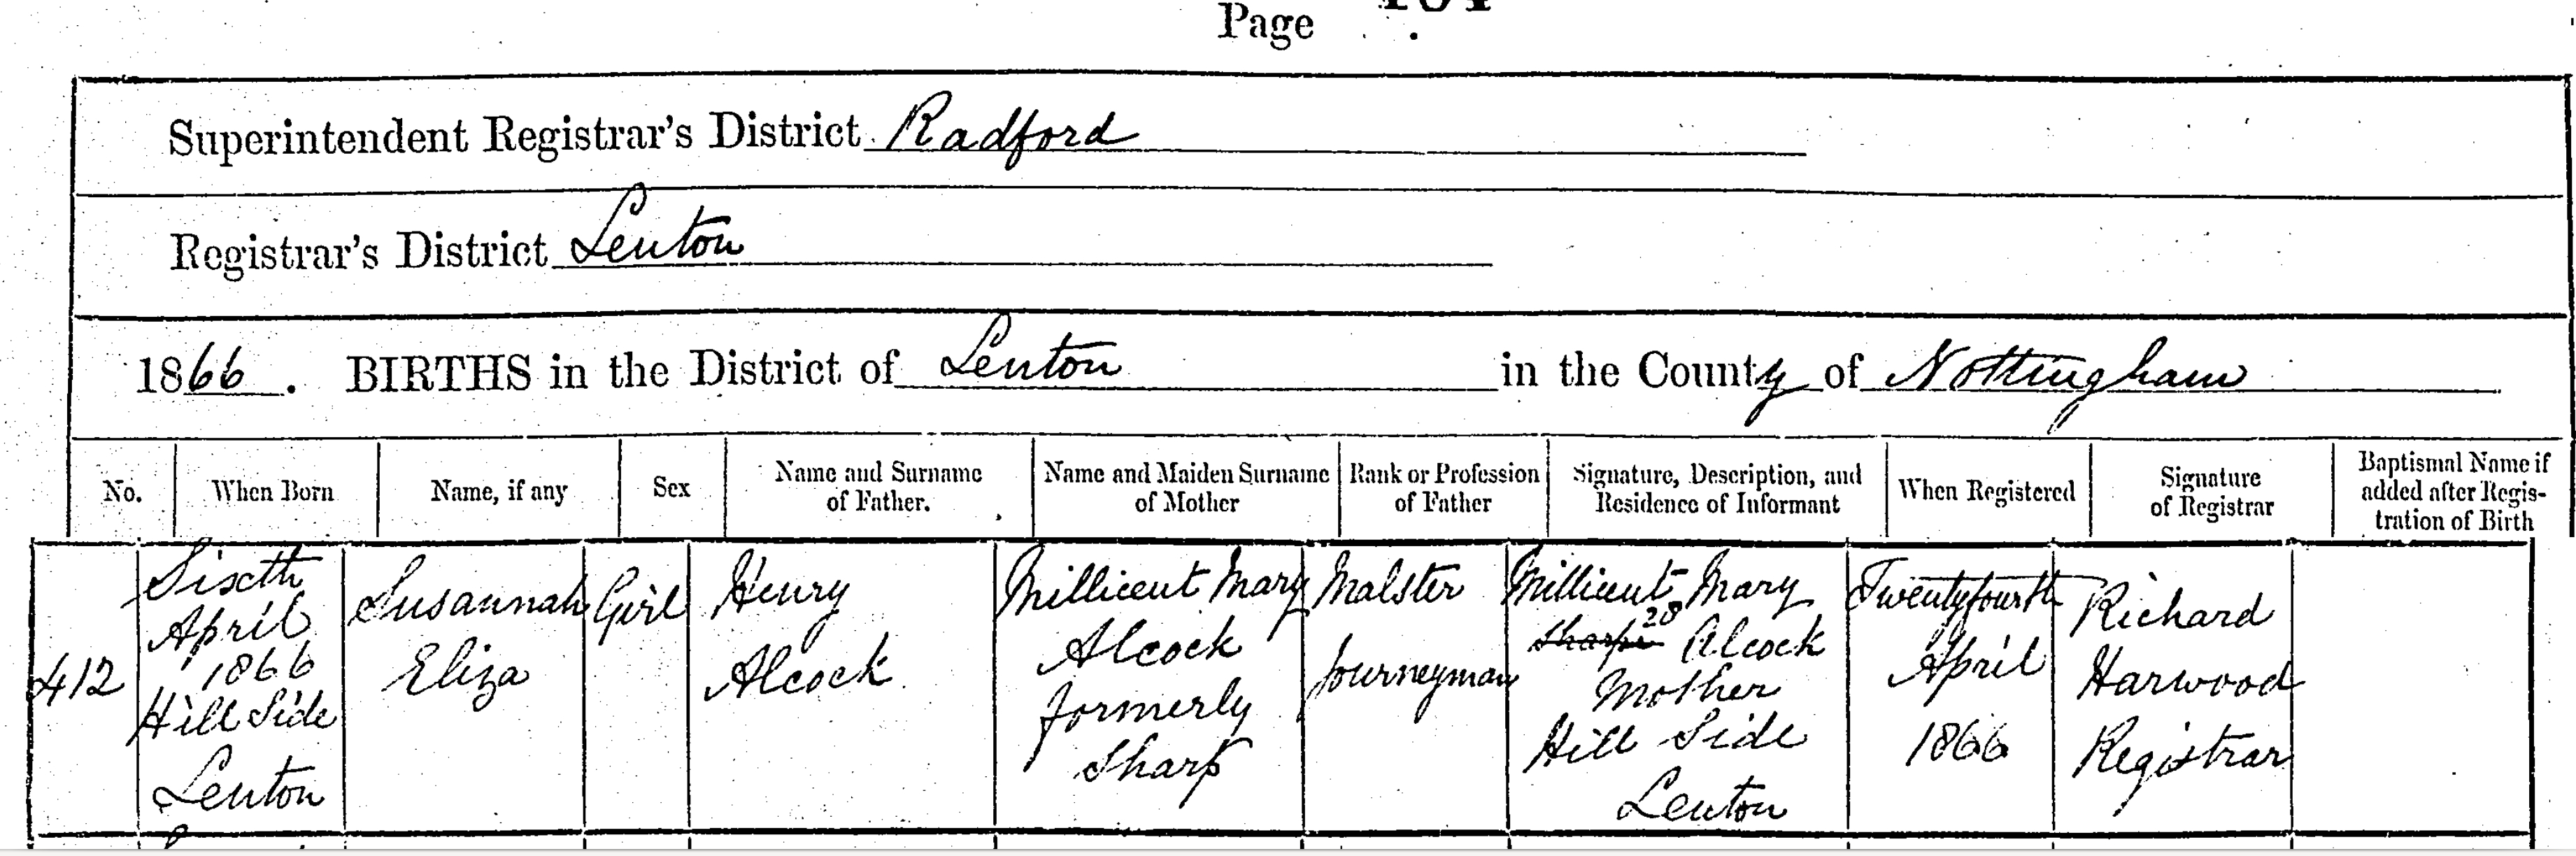 Page
Superintendent Registrar's District Radford
Registrar's District Lenton
1866. BIRTHS in the District of Lenton in the County of Nottingham
No.
When Born
Name, if any
Sex
Name and Surname
of Father.
Name and Maiden Surname
of Mother
Rank or Profession
of Father
Signature, Description, and
Residence of Informant
When Registered
Signature
of Registrar
Baptismal Name if
added after Regis-
tration of Birth
412
Sixth
April
1866
Hill Side
Lenton
Susannah
Eliza
Girl
Henry
Alcock
Millicent Mary
Alcock
formerly
Sharp
Malster
Journeyman
Millicent Mary
28
Sharpe Alcock
Mother
Hill Side
Lenton
Twentyfourth
April
1866
Richard
Harwood
Registrar